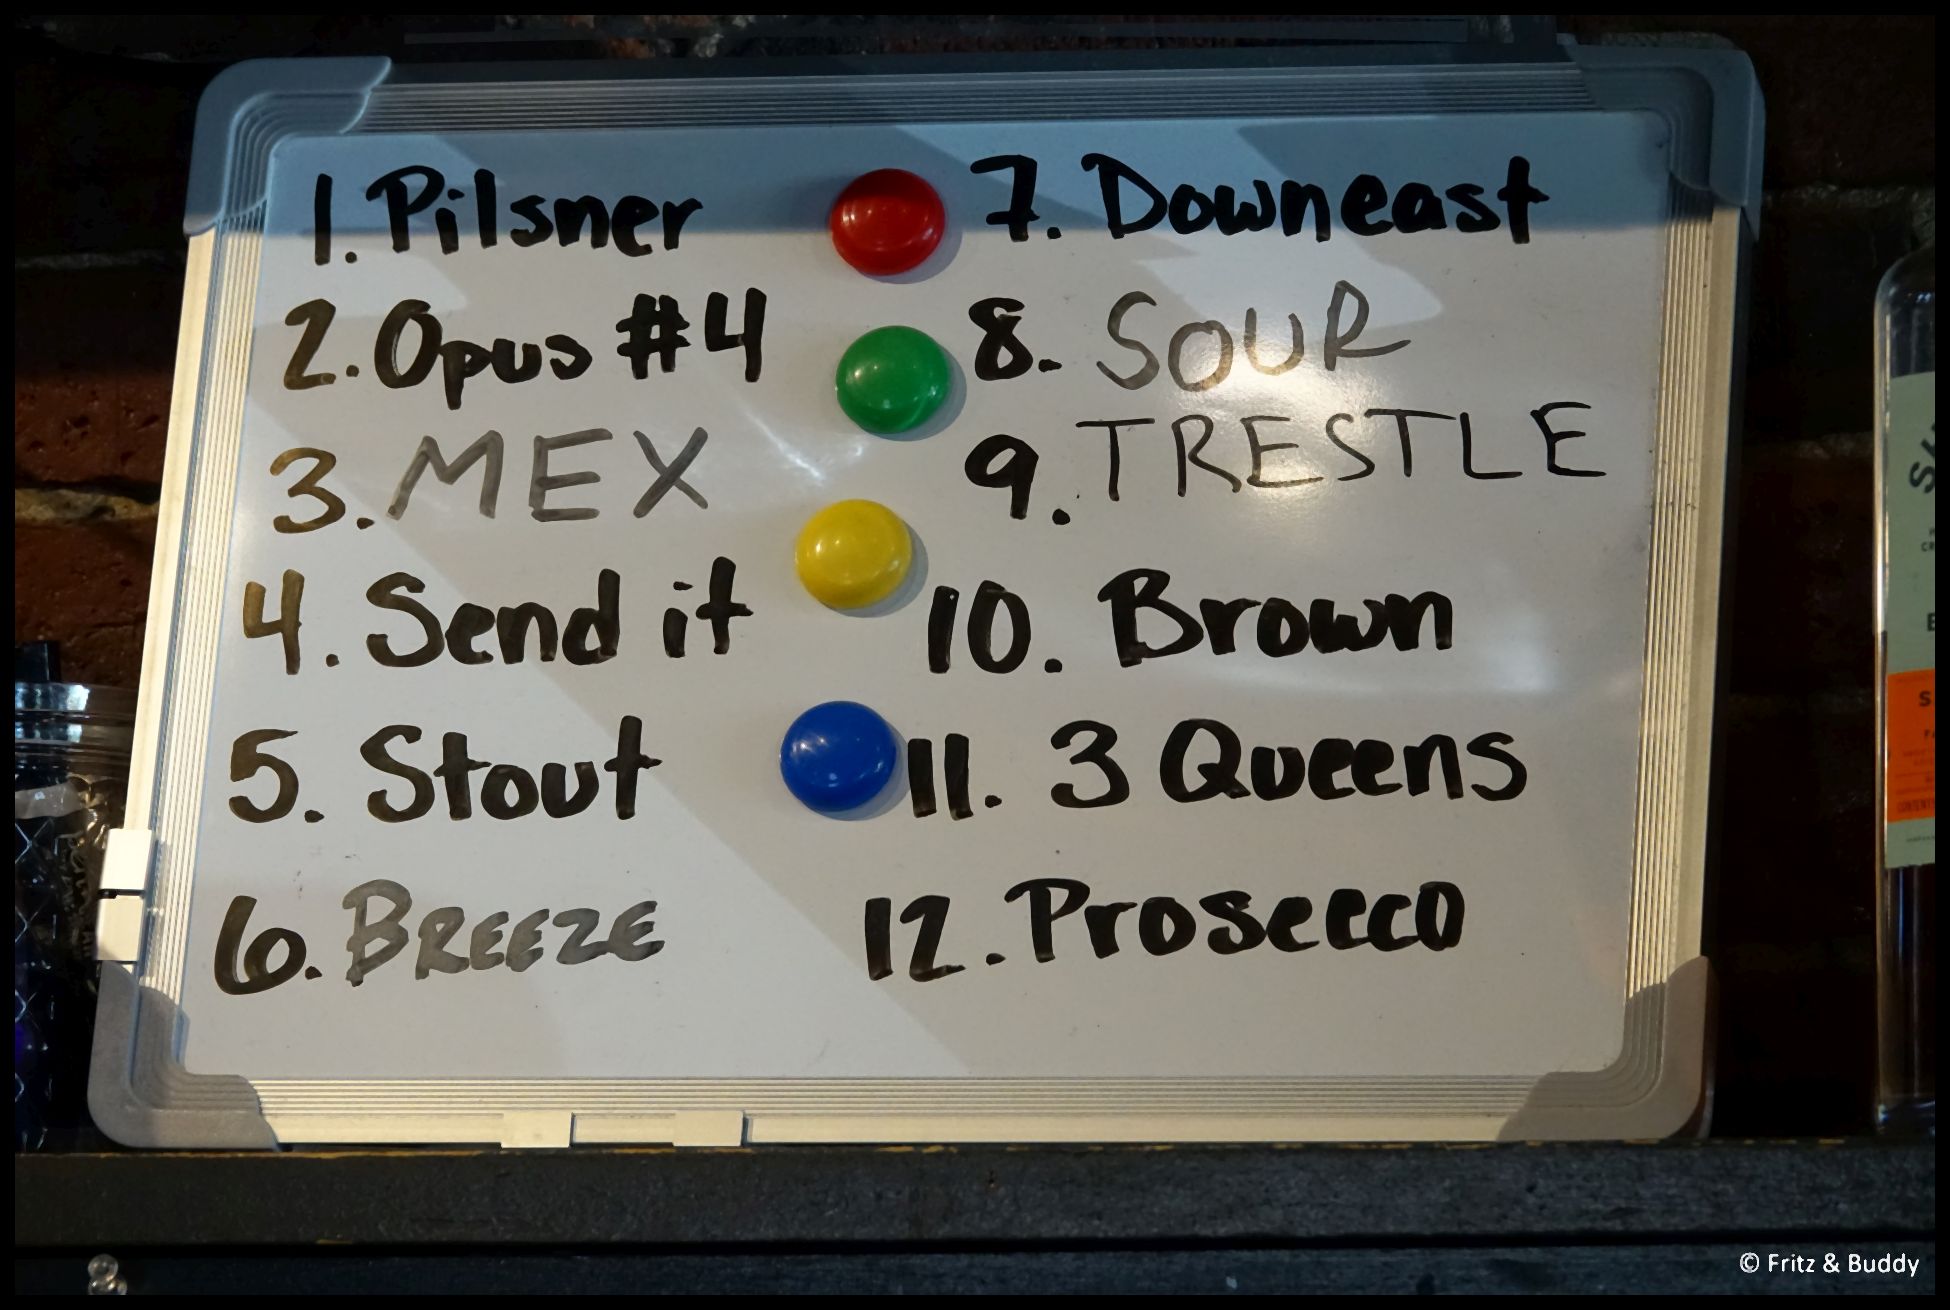 1. Pilsner
2. Opus #4
3. MEX
4. Send it
5. Stout
6. BREEZE
7. Downeast
8. SOUR
9. TRESTLE
10. Brown
11. 3 Queens
12. Prosecco
© Fritz & Buddy